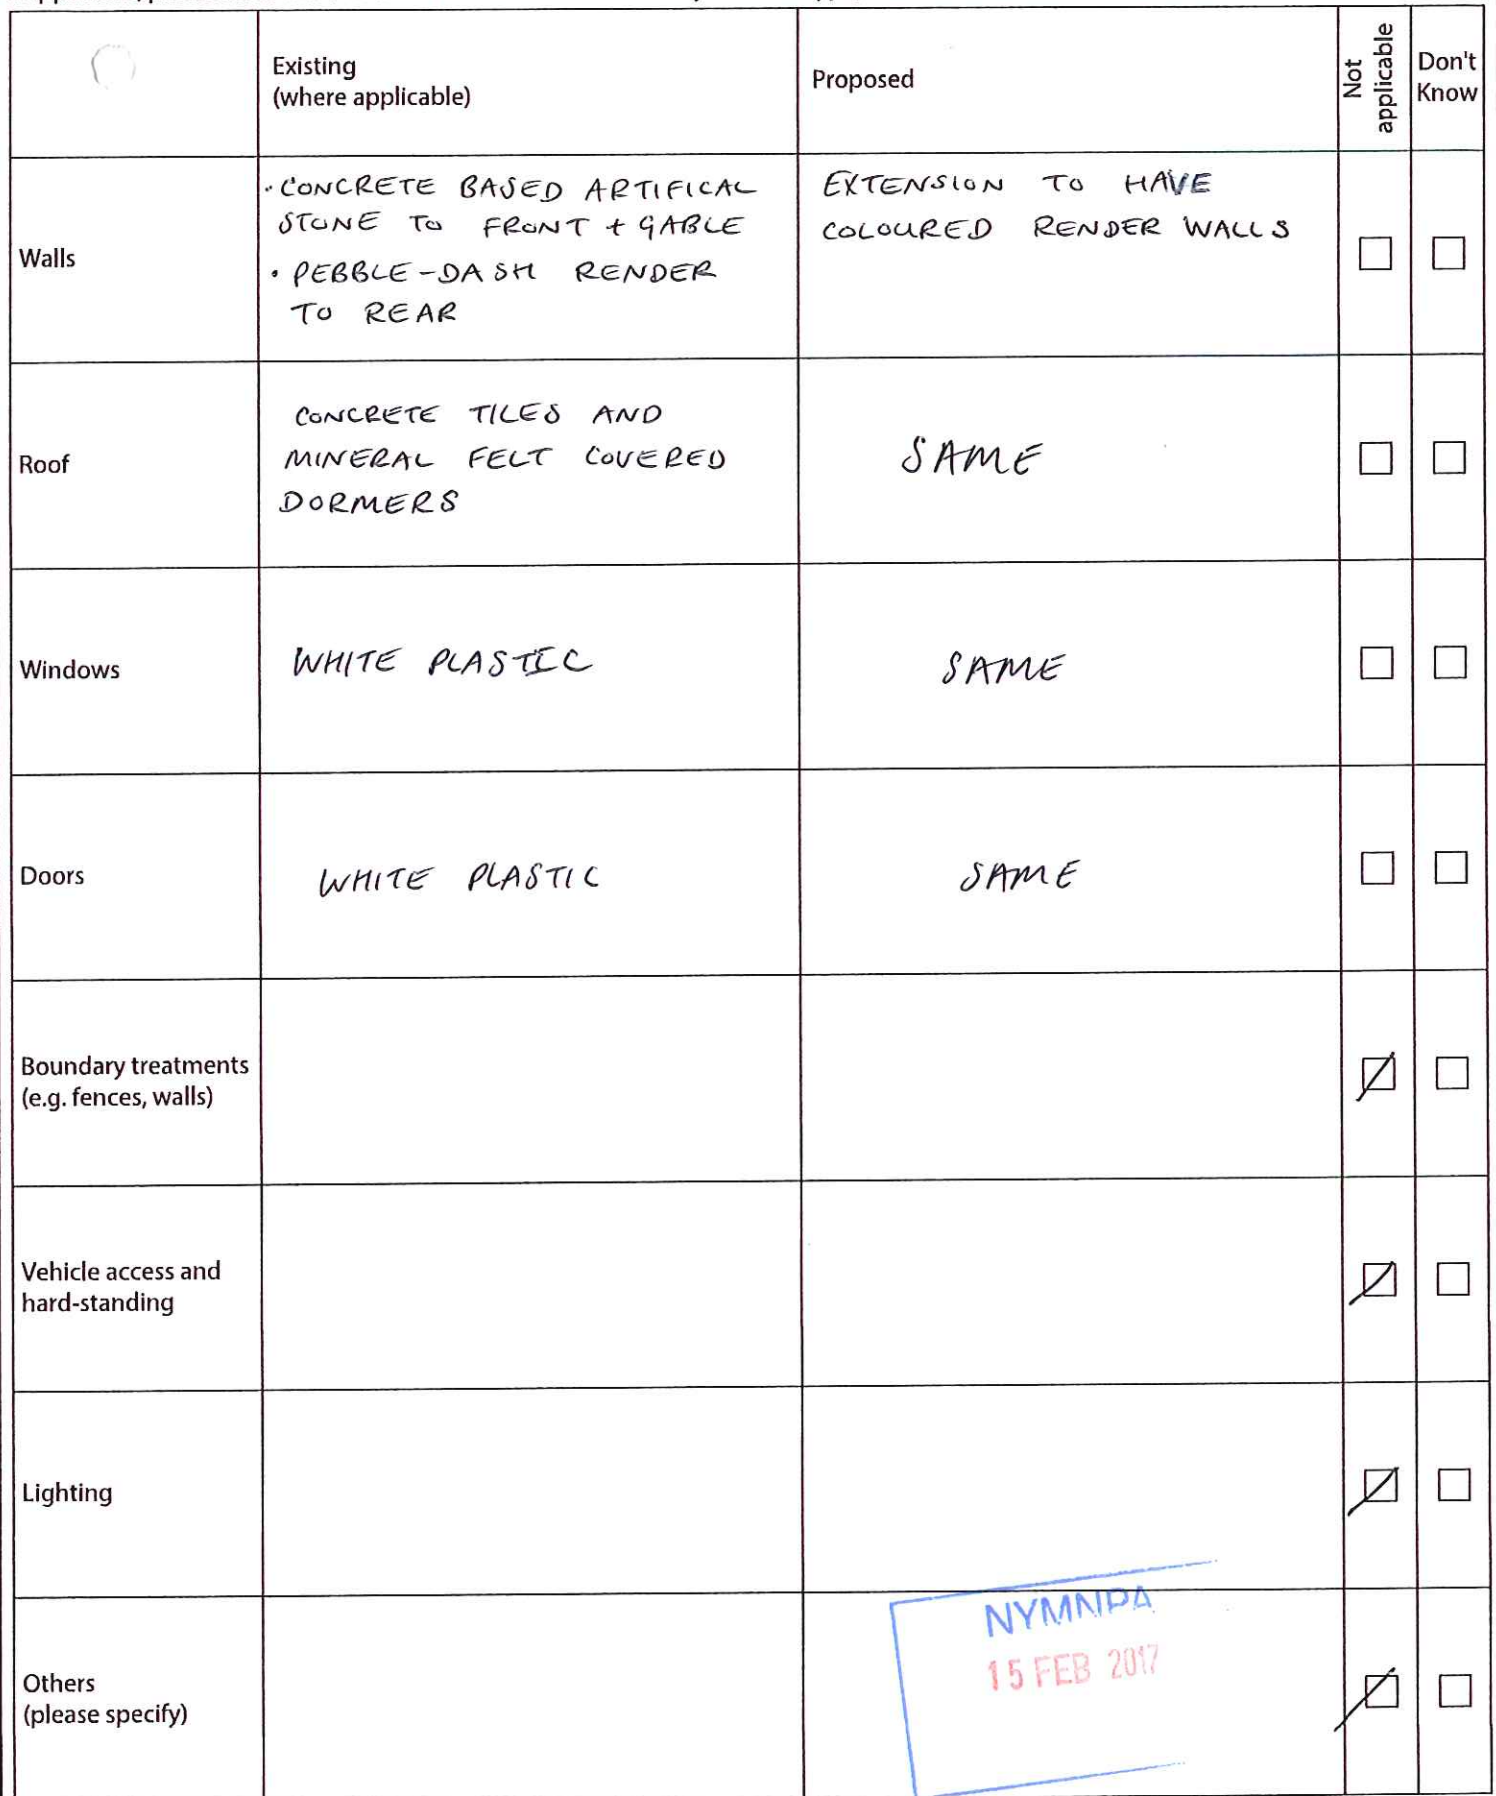 Existing
(where applicable)
Proposed
Not
applicable
Don't
Know
Walls
• CONCRETE BASED ARTIFICAL
STONE TO FRONT + GABLE
• PEBBLE-DASH RENDER
TO REAR
EXTENSION TO HAVE
COLOURED RENDER WALLS
Roof
CONCRETE TILES AND
MINERAL FELT COVERED
DORMERS
SAME
Windows
WHITE PLASTIC
SAME
Doors
WHITE PLASTIC
SAME
Boundary treatments
(e.g. fences, walls)
Vehicle access and
hard-standing
Lighting
Others
(please specify)
NYMNPA
15 FEB 2017